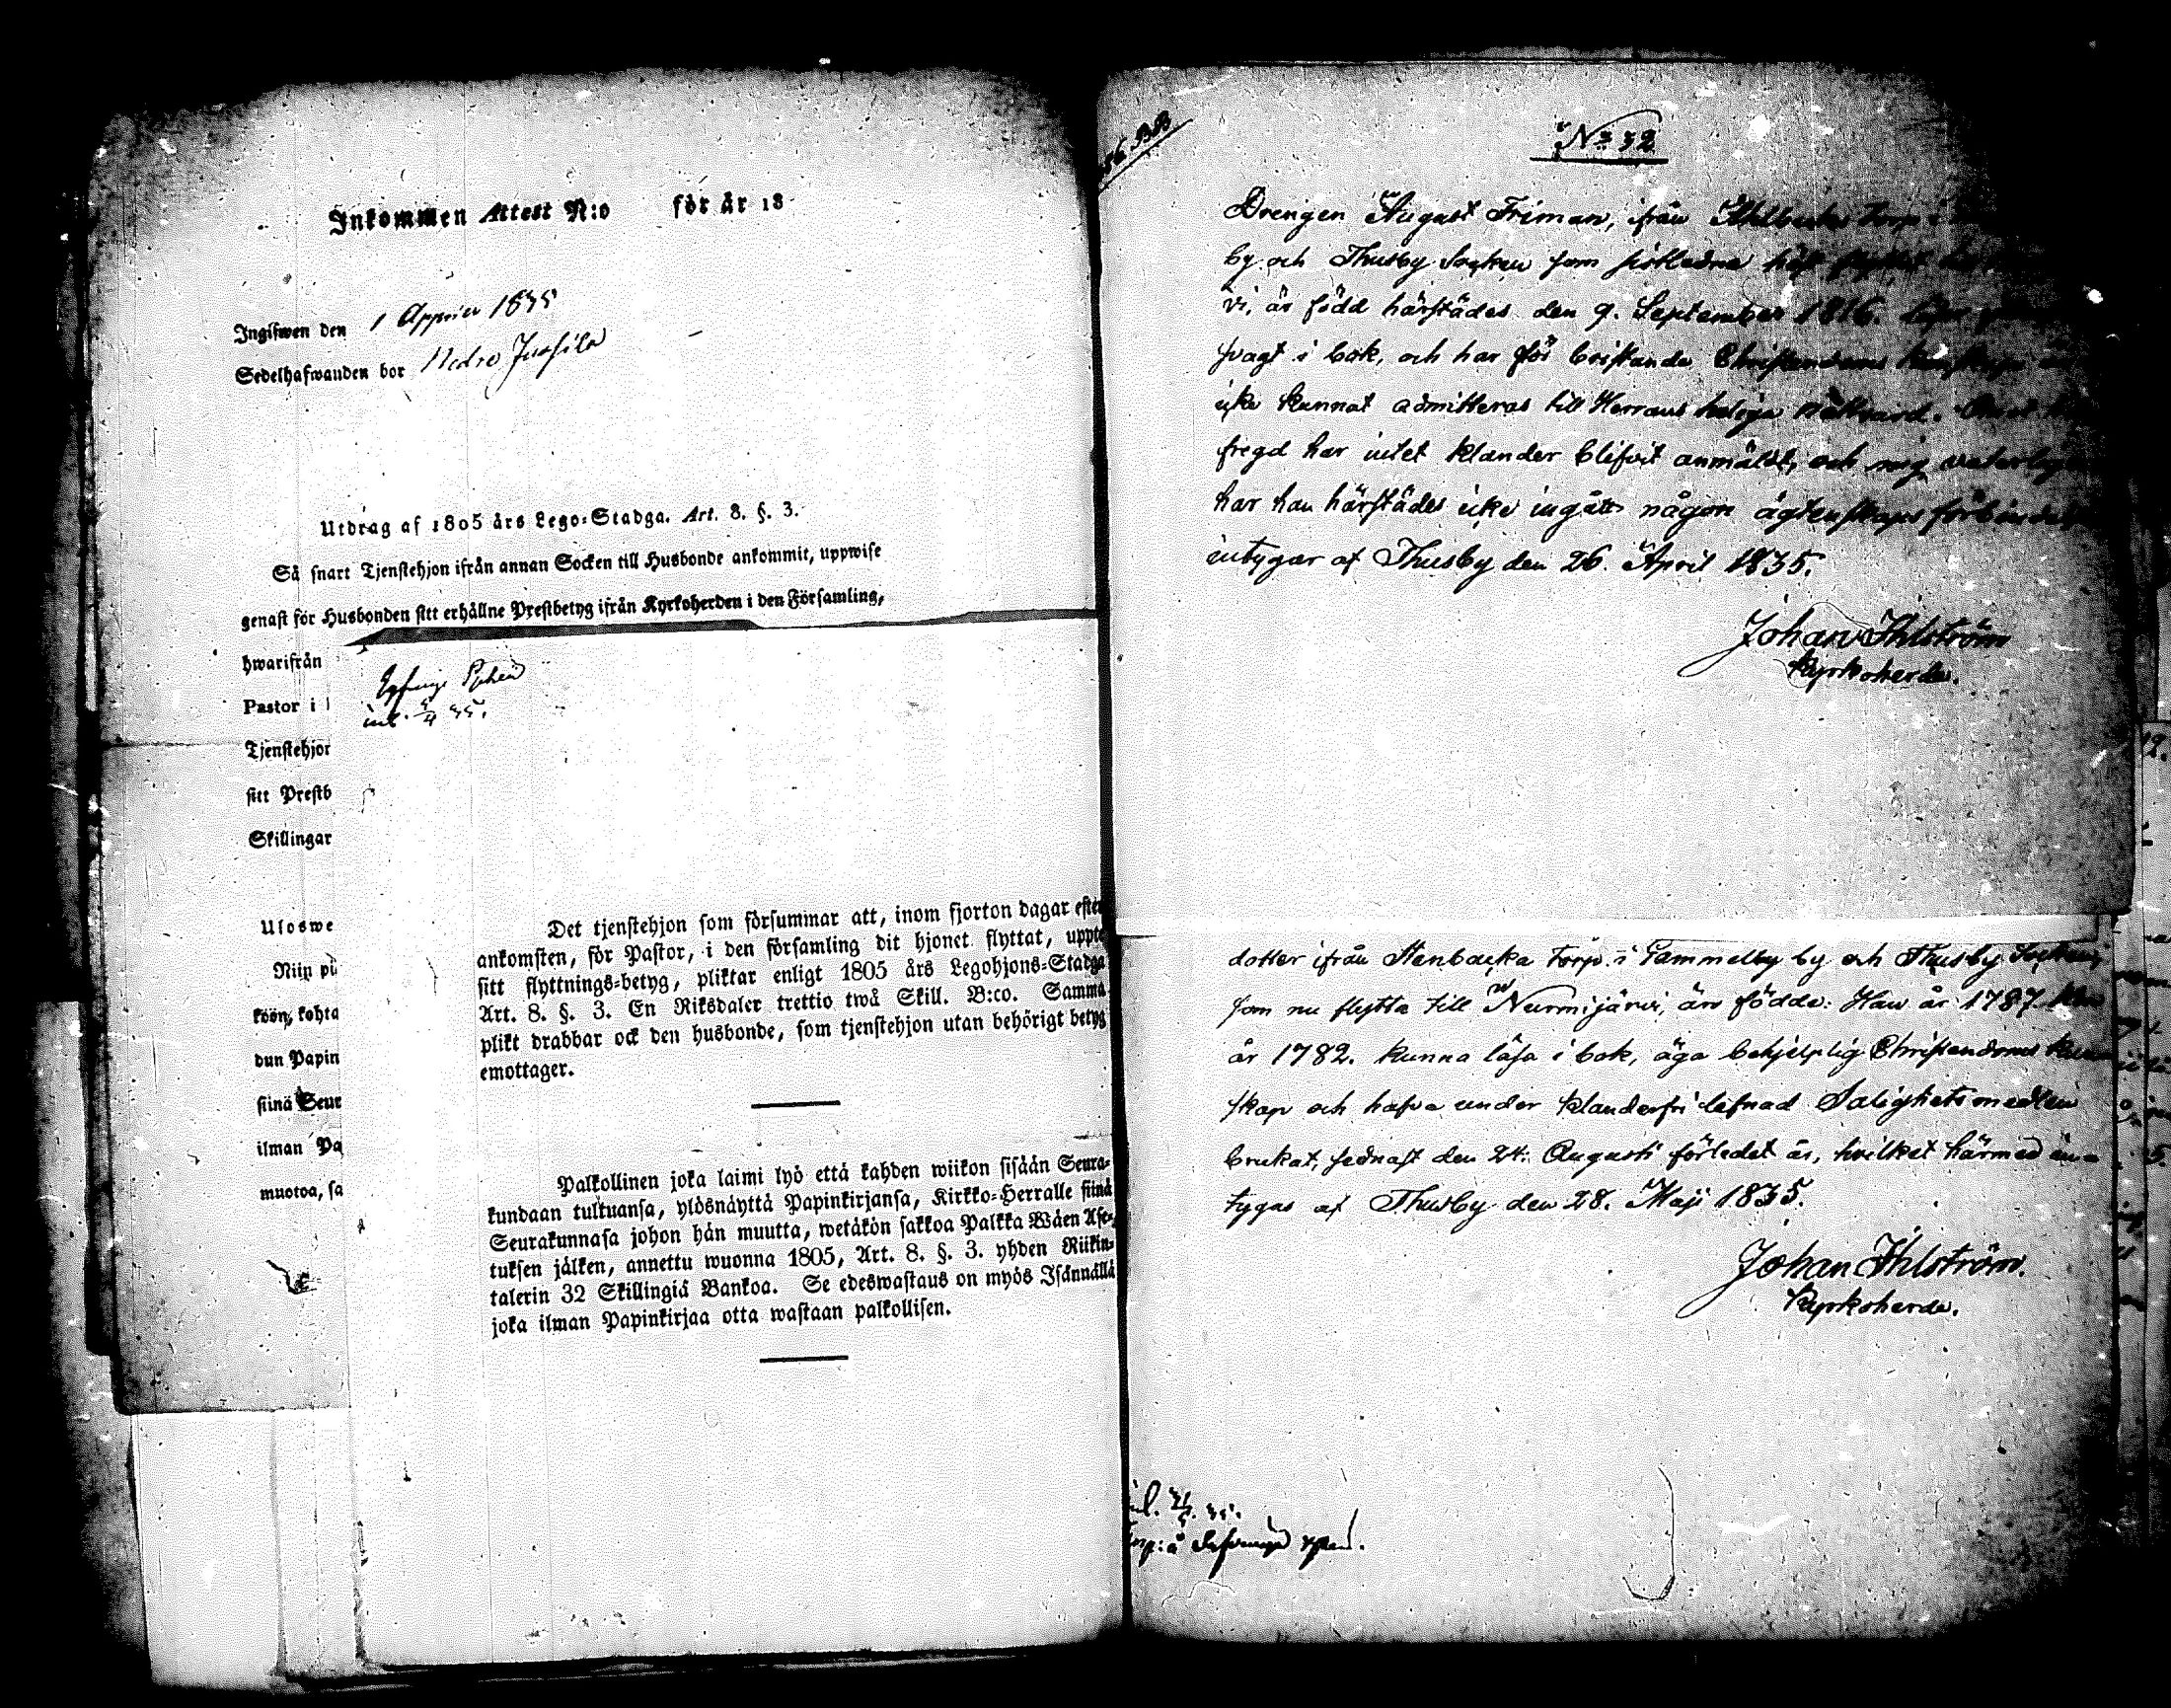 Inkommen Attest N:o för år 18
Ingifwen den 1 1835
Sedelhafwanden bor Nedro Jussila
Utdrag af 1805 års Lego-Stadga. Art. 8. §. 3.
Så snart Tjenstehjon ifrån annan Socken till Husbonde ankommit, uppwise
genast för Husbonden sitt erhållne Prestbetyg ifrån Kyrkoherden i den Församling,
hwarifrån
Pastor i
Tjenstehjor
sitt Prestb
Skillingar
Uloswe
Niin pu
köön, kohta
dun Papin
siinä Seur
ilman Pa
muotoa, sa
Det tjenstehjon som försummar att, inom fjorton dagar efter
ankomsten, för Pastor, i den församling dit hjonet flyttat, uppte
sitt flyttnings-betyg, pliktar enligt 1805 års Legohjons-Stadga
Art. 8. §. 3. En Riksdaler trettio twå Skill. B:co. Samma
plikt drabbar ock den husbonde, som tjenstehjon utan behörigt betyg
emottager.
Palkollinen joka laimi lyö että kahden wiikon sisään Seura-
kundaan tultuansa, ylösnäyttä Papinkirjansa, Kirkko-Herralle siinä
Seurakunnasa johon hän muutta, wetäkön sakkoa Palkka Wäen Ase-
tuksen jälken, annettu wuonna 1805, Art. 8. §. 3. yhden Riikin-
talerin 32 Skillingiä Bankoa. Se edeswastaus on myös Isännällä
joka ilman Papinkirjaa otta wastaan palkollisen.
No 32
Drengen August Friman, ifrån torp
by och Thusby Socken som sistledne höst
vi, är född härstädes den 9. September 1816.
svagt i bok, och har för bristande Christendoms kunskap
icke kunnat admitteras till Herrans heliga nattvard.
fregd har intet klander blifvit anmäldt, och mig veterligen
har han härstädes icke ingått någon ägtenskaps förbindelse
intygar af Thusby den 26. April 1835.
Johan Ihlström
Kyrkoherde.
dotter ifrån Stenbacka torp i Gammelby by och Thusby Socken,
som nu flytta till Nurmijärvi, äro födde: Han år 1787. Hon
år 1782. kunna läsa i bok, äga behjelplig Christendoms kun
skap och hafva under klanderfri lefnad Salighetsmedlen
brukat, sednast den 24. Augusti förledet år, hvilket härmed in
tygas af Thusby den 28. Maji 1835.
Johan Ihlström.
Kyrkoherde.